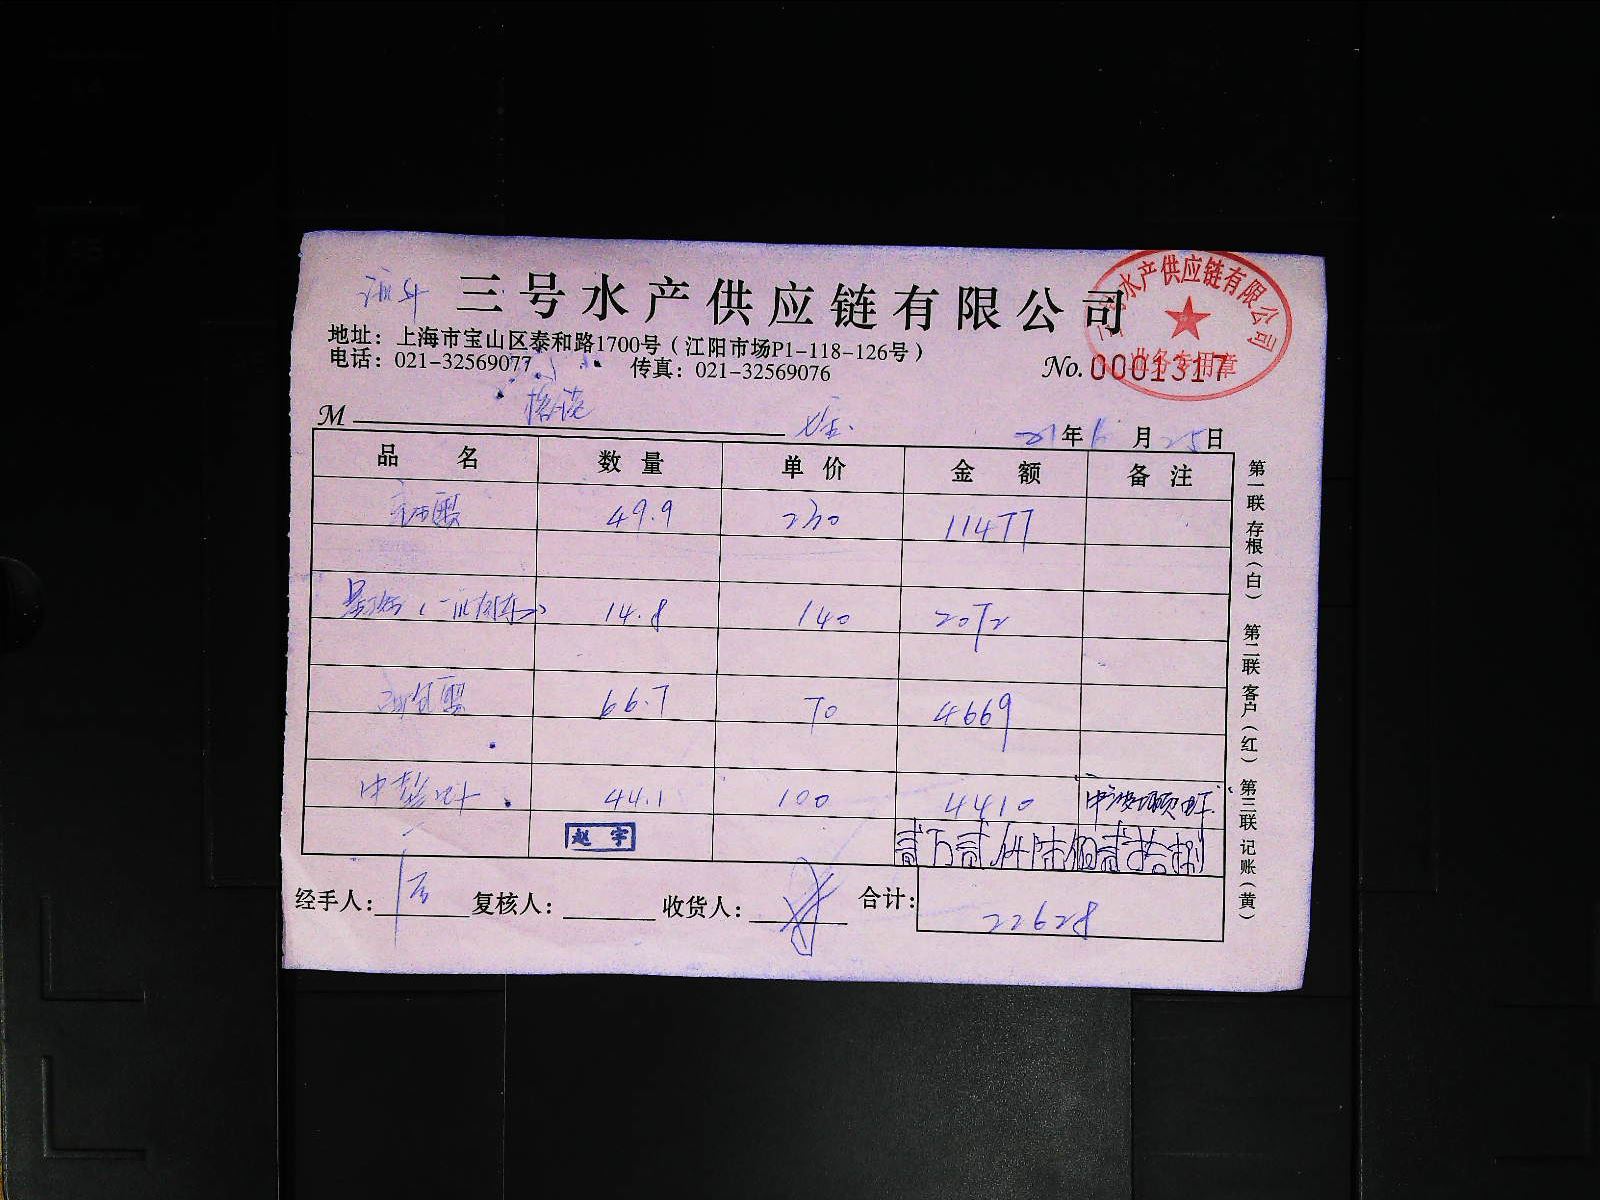 三号水产供应链有限公司
三号水产供应链有限公司
业务专用章
地址：上海市宝山区泰和路1700号（江阳市场P1-118-126号）
电话：021-32569077 传真：021-32569076
No. 0001317
M
21年 月25日
品 名 数 量 单 价 金 额 备 注
49.9 230 11477
14.8 140 2072
66.7 70 4669
44.1 100 4410
赵宇 贰万贰仟陆佰贰拾捌
经手人： 复核人： 收货人： 合计： 22628
第一联 存根（白） 第二联 客户（红） 第三联 记账（黄）